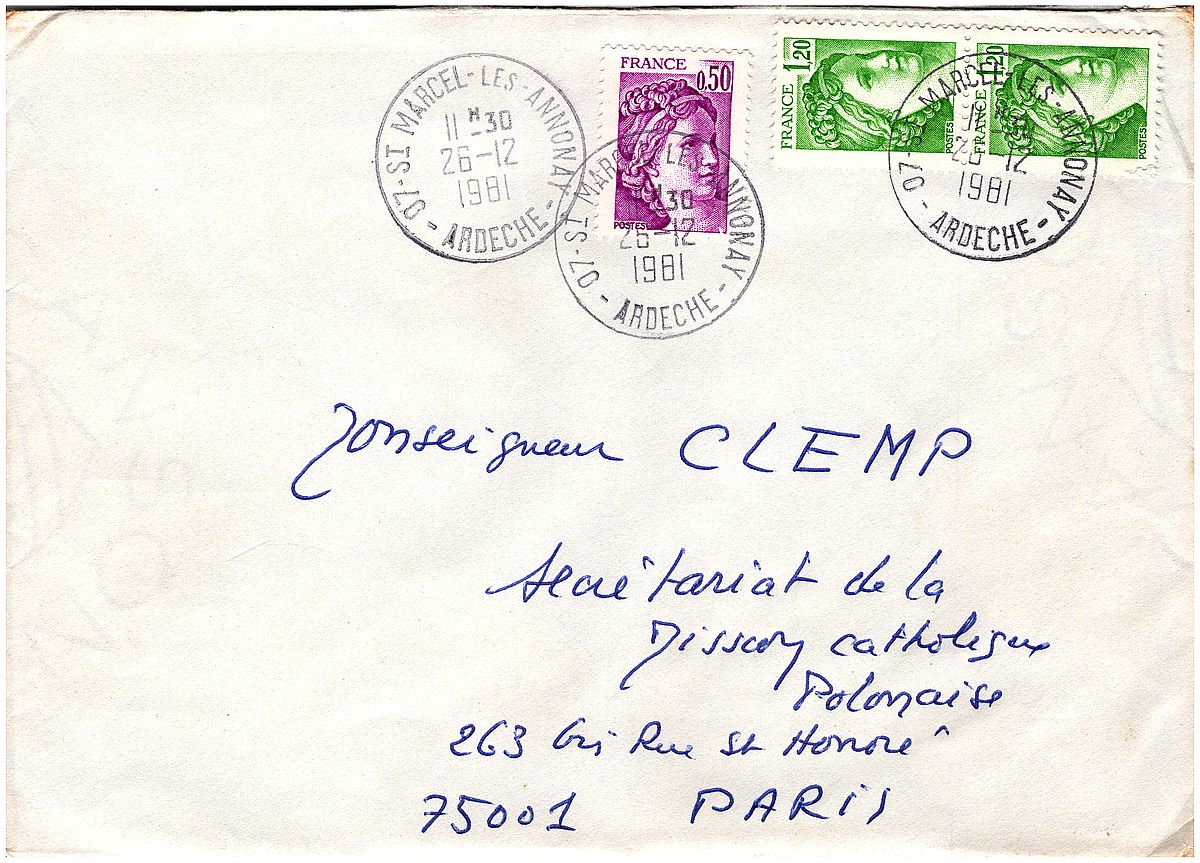 07-ST MARCEL-LES-ANNONAY - ARDECHE -
11H30
26-12
1981
FRANCE
0,50
POSTES
07-ST MARCEL-LES-ANNONAY - ARDECHE -
11H30
26-12
1981
1,20
FRANCE
POSTES
1,20
FRANCE
POSTES
07-ST MARCEL-LES-ANNONAY - ARDECHE -
11H30
26-12
1981
Monseigneur CLEMP
Secrétariat de la
Mission catholique
Polonaise
263 bis Rue St Honoré
75001 PARIS